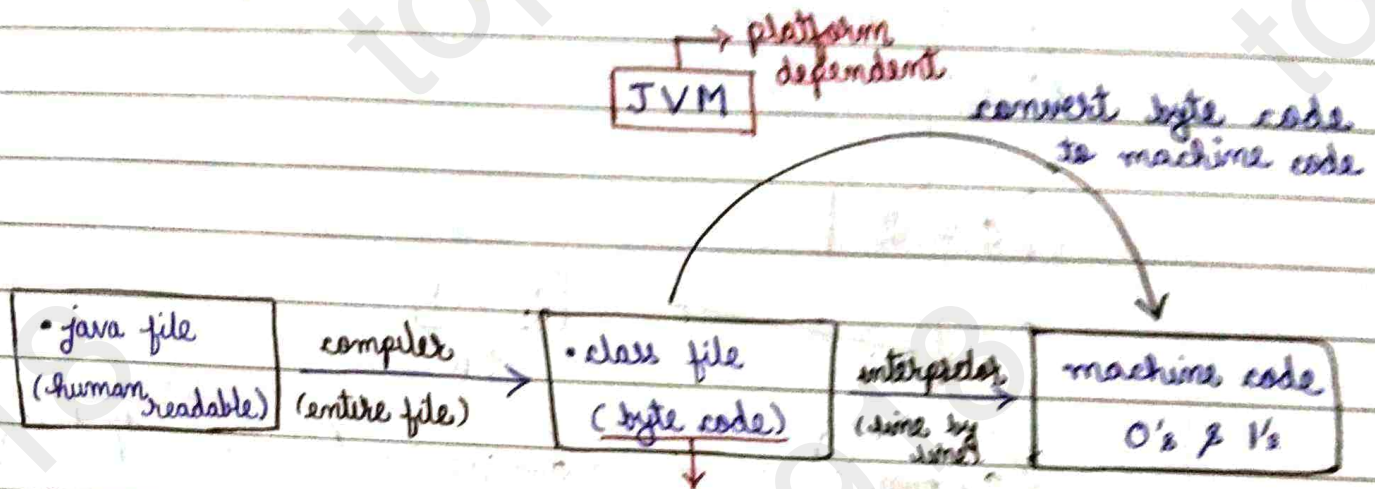 platform
dependent
JVM
convert byte code
to machine code
• java file
(human readable)
compiler
(entire file)
• class file
(byte code)
interpretor
(line by
line)
machine code
0's & 1's